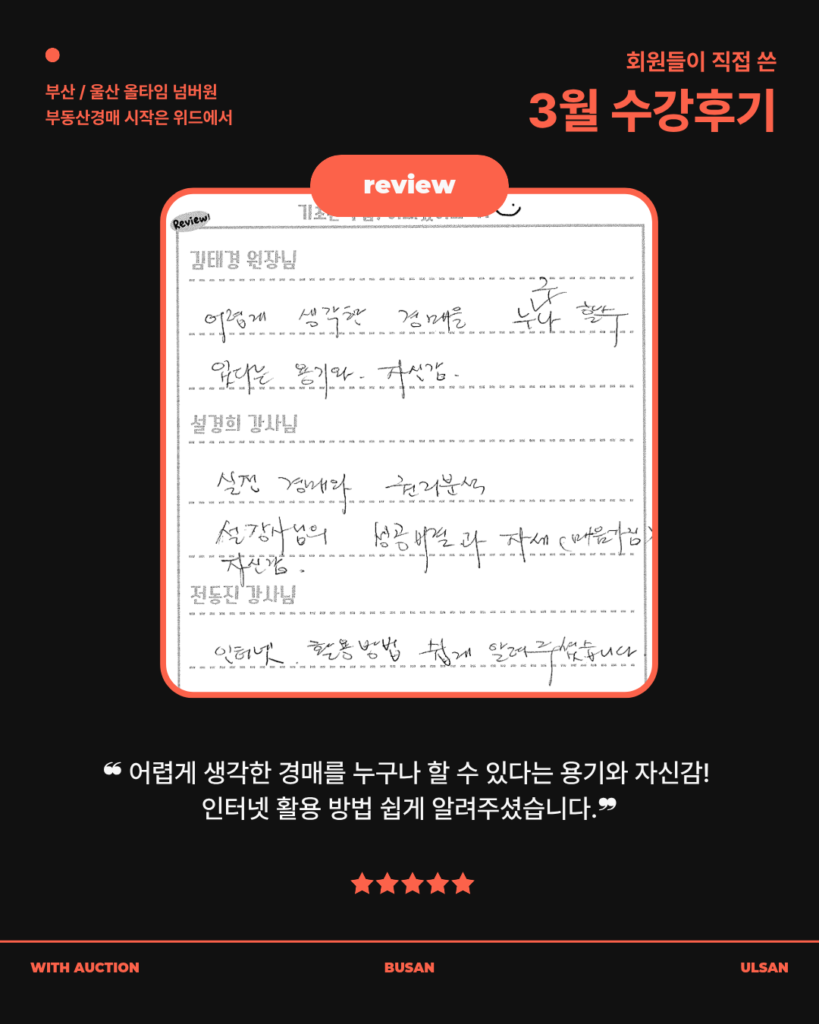 부산 / 울산 올타임 넘버원
부동산경매 시작은 위드에서
회원들이 직접 쓴
3월 수강후기
review
Review!
김태경 원장님
어렵게 생각한 경매을 누구나 할수
있다는 용기와. 자신감.
설경희 강사님
실전 경매와 권리분석
설강사님의 성공비결과 자세 (마음가짐)
자신감.
전동진 강사님
인터넷. 활용방법 쉽게 알려주셨습니다.
❝ 어렵게 생각한 경매를 누구나 할 수 있다는 용기와 자신감!
인터넷 활용 방법 쉽게 알려주셨습니다.❞
WITH AUCTION BUSAN ULSAN